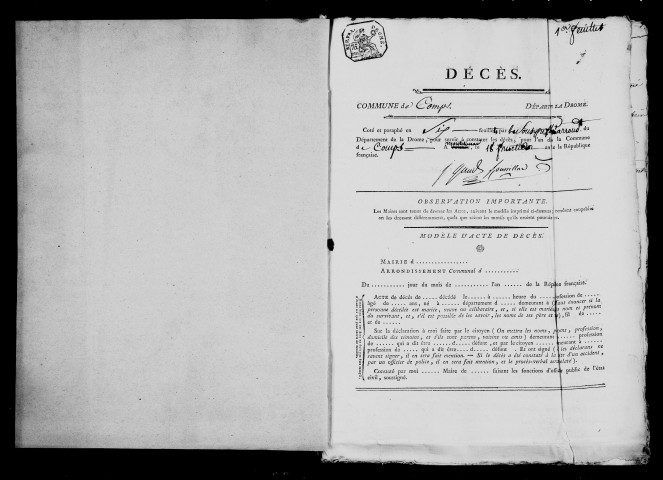 1er feuillet
DÉCÈS.
COMMUNE de Comps. DÉPART. LA DROME.
Coté et paraphé en Six feuillets par le du
Département de la Drome, pour servir à constater les décès, pour l'an de la Commune
de Comps A le 16 fructidor an de la République
française.
OBSERVATION IMPORTANTE.
Les Maires sont tenus de dresser les Actes, suivant le modèle imprimé ci-dessous,
en les dressant différemment, quels que soient les motifs qu'ils croient
MODÈLE D'ACTE DE DÉCÈS.
MAIRIE d
ARRONDISSEMENT Communal d
Du jour du mois de l'an de la Répub. française.
ACTE de décès de décédé le à heure du profession de
âgé de ans, né à département d demeurant à (Faut énoncer si la
personne décédée est mariée, veuve ou célibataire, et, si elle est mariée, nom et prénom
du survivant, et, s'il est possible de les savoir, les noms de ses père et mère), fil du
et de
Sur la déclaration à moi faite par le citoyen (On mettra les noms, prénoms, profession,
domicile des témoins, et s'ils sont parens, voisins ou amis) demeurant profession
de qui a dit être d défunt, et par le citoyen demeurant à
profession de qui a dit être d défunt Et ont signé (Si les déclarans ne
savent signer, il en sera fait mention. — Si le décès a été constaté à la suite d'un accident,
par un officier de police, il en sera fait mention, et le procès-verbal annexé).
Constaté par moi Maire de faisant les fonctions d'officier public de l'état
civil, soussigné.